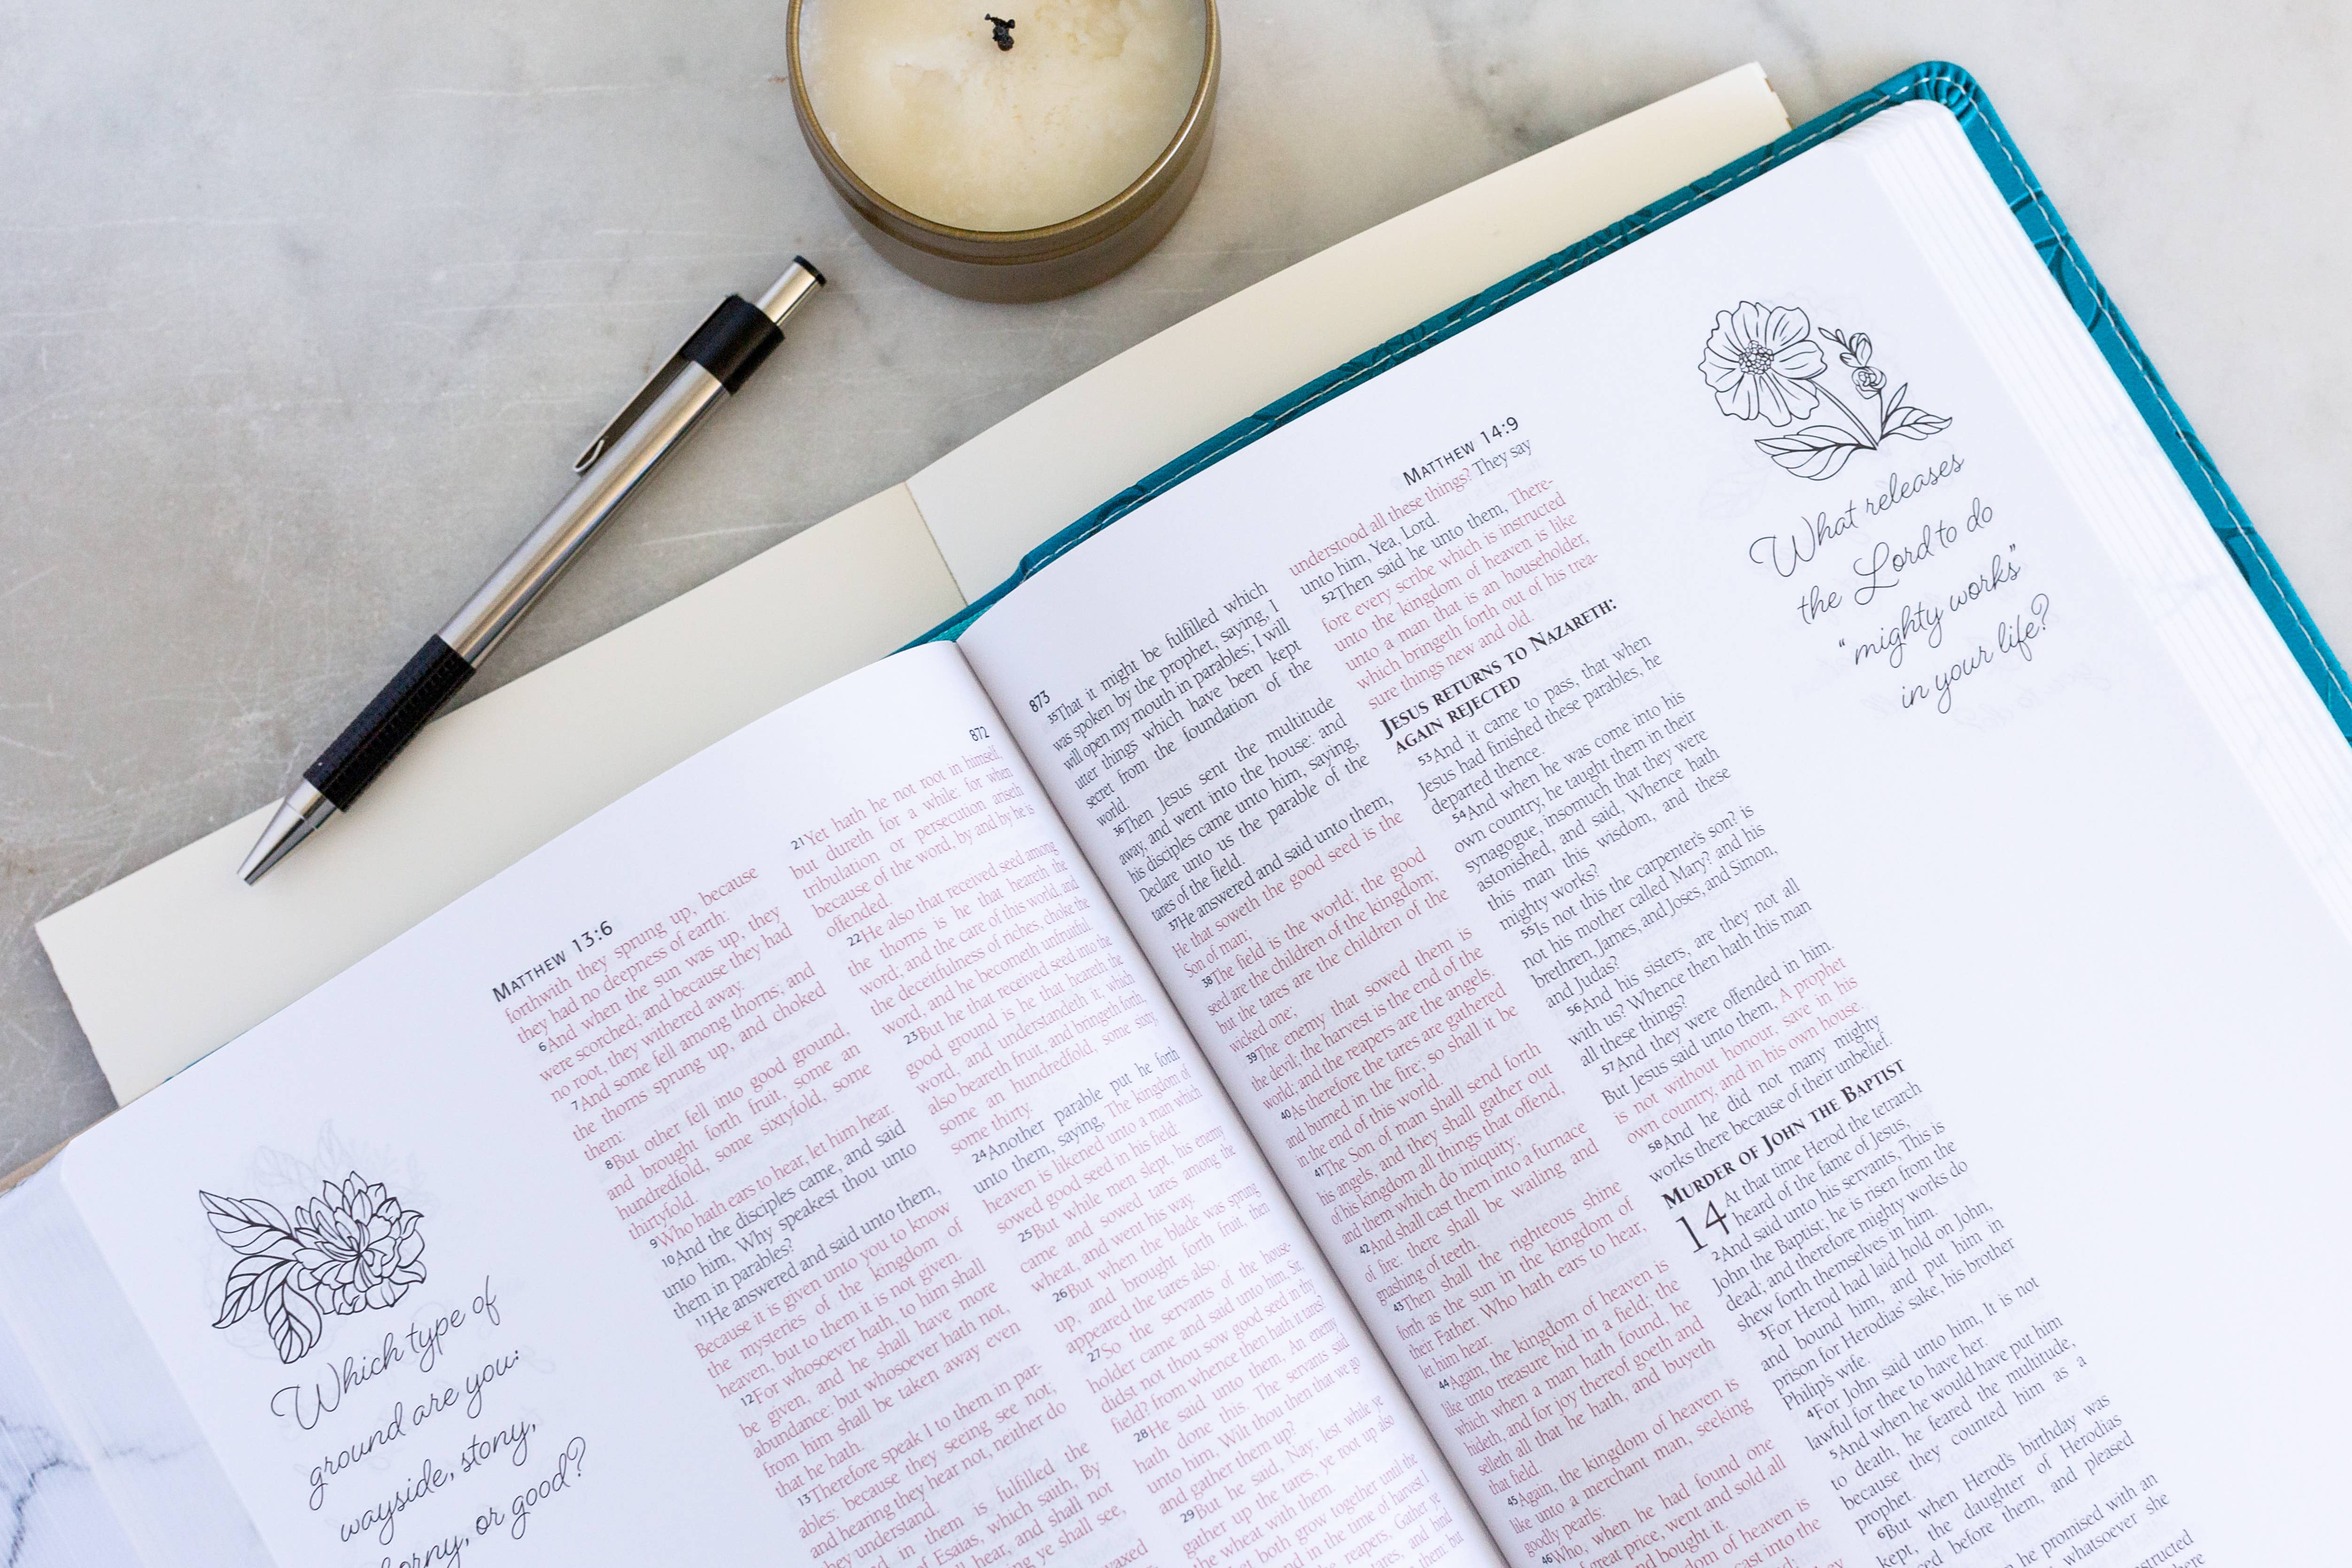 MATTHEW 13:6
872
forthwith they sprung up, because
they had no deepness of earth:
6And when the sun was up, they
were scorched; and because they had
no root, they withered away.
7And some fell among thorns; and
the thorns sprung up, and choked
them:
8But other fell into good ground,
and brought forth fruit, some an
hundredfold, some sixtyfold, some
thirtyfold.
9Who hath ears to hear, let him hear.
10And the disciples came, and said
unto him, Why speakest thou unto
them in parables?
11He answered and said unto them,
Because it is given unto you to know
the mysteries of the kingdom of
heaven, but to them it is not given.
12For whosoever hath, to him shall
be given, and he shall have more
abundance: but whosoever hath not,
from him shall be taken away even
that he hath.
13Therefore speak I to them in par-
ables: because they seeing see not;
and hearing they hear not, neither do
they understand.
in them is fulfilled the
of Esaias, which saith, By
hear, and shall not
ing ye shall see,
waxed
21Yet hath he not root in himself,
but dureth for a while: for when
tribulation or persecution ariseth
because of the word, by and by he is
offended.
22He also that received seed among
the thorns is he that heareth the
word; and the care of this world, and
the deceitfulness of riches, choke the
word, and he becometh unfruitful.
23But he that received seed into the
good ground is he that heareth the
word, and understandeth it; which
also beareth fruit, and bringeth forth,
some an hundredfold, some sixty,
some thirty.
24Another parable put he forth
unto them, saying, The kingdom of
heaven is likened unto a man which
sowed good seed in his field:
25But while men slept, his enemy
came and sowed tares among the
wheat, and went his way.
26But when the blade was sprung
up, and brought forth fruit, then
appeared the tares also.
27So the servants of the house-
holder came and said unto him, Sir,
didst not thou sow good seed in thy
field? from whence then hath it tares?
28He said unto them, An enemy
hath done this. The servants said
unto him, Wilt thou then that we go
and gather them up?
29But he said, Nay; lest while ye
gather up the tares, ye root up also
the wheat with them.
both grow together until the
and in the time of harvest I
the reapers, Gather ye
tares, and bind
them: but
Which type of
ground are you:
wayside, stony,
orny, or good?
873
MATTHEW 14:9
35That it might be fulfilled which
was spoken by the prophet, saying, I
will open my mouth in parables; I will
utter things which have been kept
secret from the foundation of the
world.
36Then Jesus sent the multitude
away, and went into the house: and
his disciples came unto him, saying,
Declare unto us the parable of the
tares of the field.
37He answered and said unto them,
He that soweth the good seed is the
Son of man;
38The field is the world; the good
seed are the children of the kingdom;
but the tares are the children of the
wicked one;
39The enemy that sowed them is
the devil; the harvest is the end of the
world; and the reapers are the angels.
40As therefore the tares are gathered
and burned in the fire; so shall it be
in the end of this world.
41The Son of man shall send forth
his angels, and they shall gather out
of his kingdom all things that offend,
and them which do iniquity;
42And shall cast them into a furnace
of fire: there shall be wailing and
gnashing of teeth.
43Then shall the righteous shine
forth as the sun in the kingdom of
their Father. Who hath ears to hear,
let him hear.
44Again, the kingdom of heaven is
like unto treasure hid in a field; the
which when a man hath found, he
hideth, and for joy thereof goeth and
selleth all that he hath, and buyeth
that field.
45Again, the kingdom of heaven is
like unto a merchant man, seeking
goodly pearls:
46Who, when he had found one
great price, went and sold all
and bought it.
dom of heaven is
cast into the
understood all these things? They say
unto him, Yea, Lord.
52Then said he unto them, There-
fore every scribe which is instructed
unto the kingdom of heaven is like
unto a man that is an householder,
which bringeth forth out of his trea-
sure things new and old.
JESUS RETURNS TO NAZARETH:
AGAIN REJECTED
53And it came to pass, that when
Jesus had finished these parables, he
departed thence.
54And when he was come into his
own country, he taught them in their
synagogue, insomuch that they were
astonished, and said, Whence hath
this man this wisdom, and these
mighty works?
55Is not this the carpenter's son? is
not his mother called Mary? and his
brethren, James, and Joses, and Simon,
and Judas?
56And his sisters, are they not all
with us? Whence then hath this man
all these things?
57And they were offended in him.
But Jesus said unto them, A prophet
is not without honour, save in his
own country, and in his own house.
58And he did not many mighty
works there because of their unbelief.
MURDER OF JOHN THE BAPTIST
14 At that time Herod the tetrarch
heard of the fame of Jesus,
2And said unto his servants, This is
John the Baptist; he is risen from the
dead; and therefore mighty works do
shew forth themselves in him.
3For Herod had laid hold on John,
and bound him, and put him in
prison for Herodias' sake, his brother
Philip's wife.
4For John said unto him, It is not
lawful for thee to have her.
5And when he would have put him
to death, he feared the multitude,
because they counted him as a
prophet.
6But when Herod's birthday was
kept, the daughter of Herodias
before them, and pleased
he promised with an
whatsoever she
structed
What releases
the Lord to do
"mighty works"
in your life?